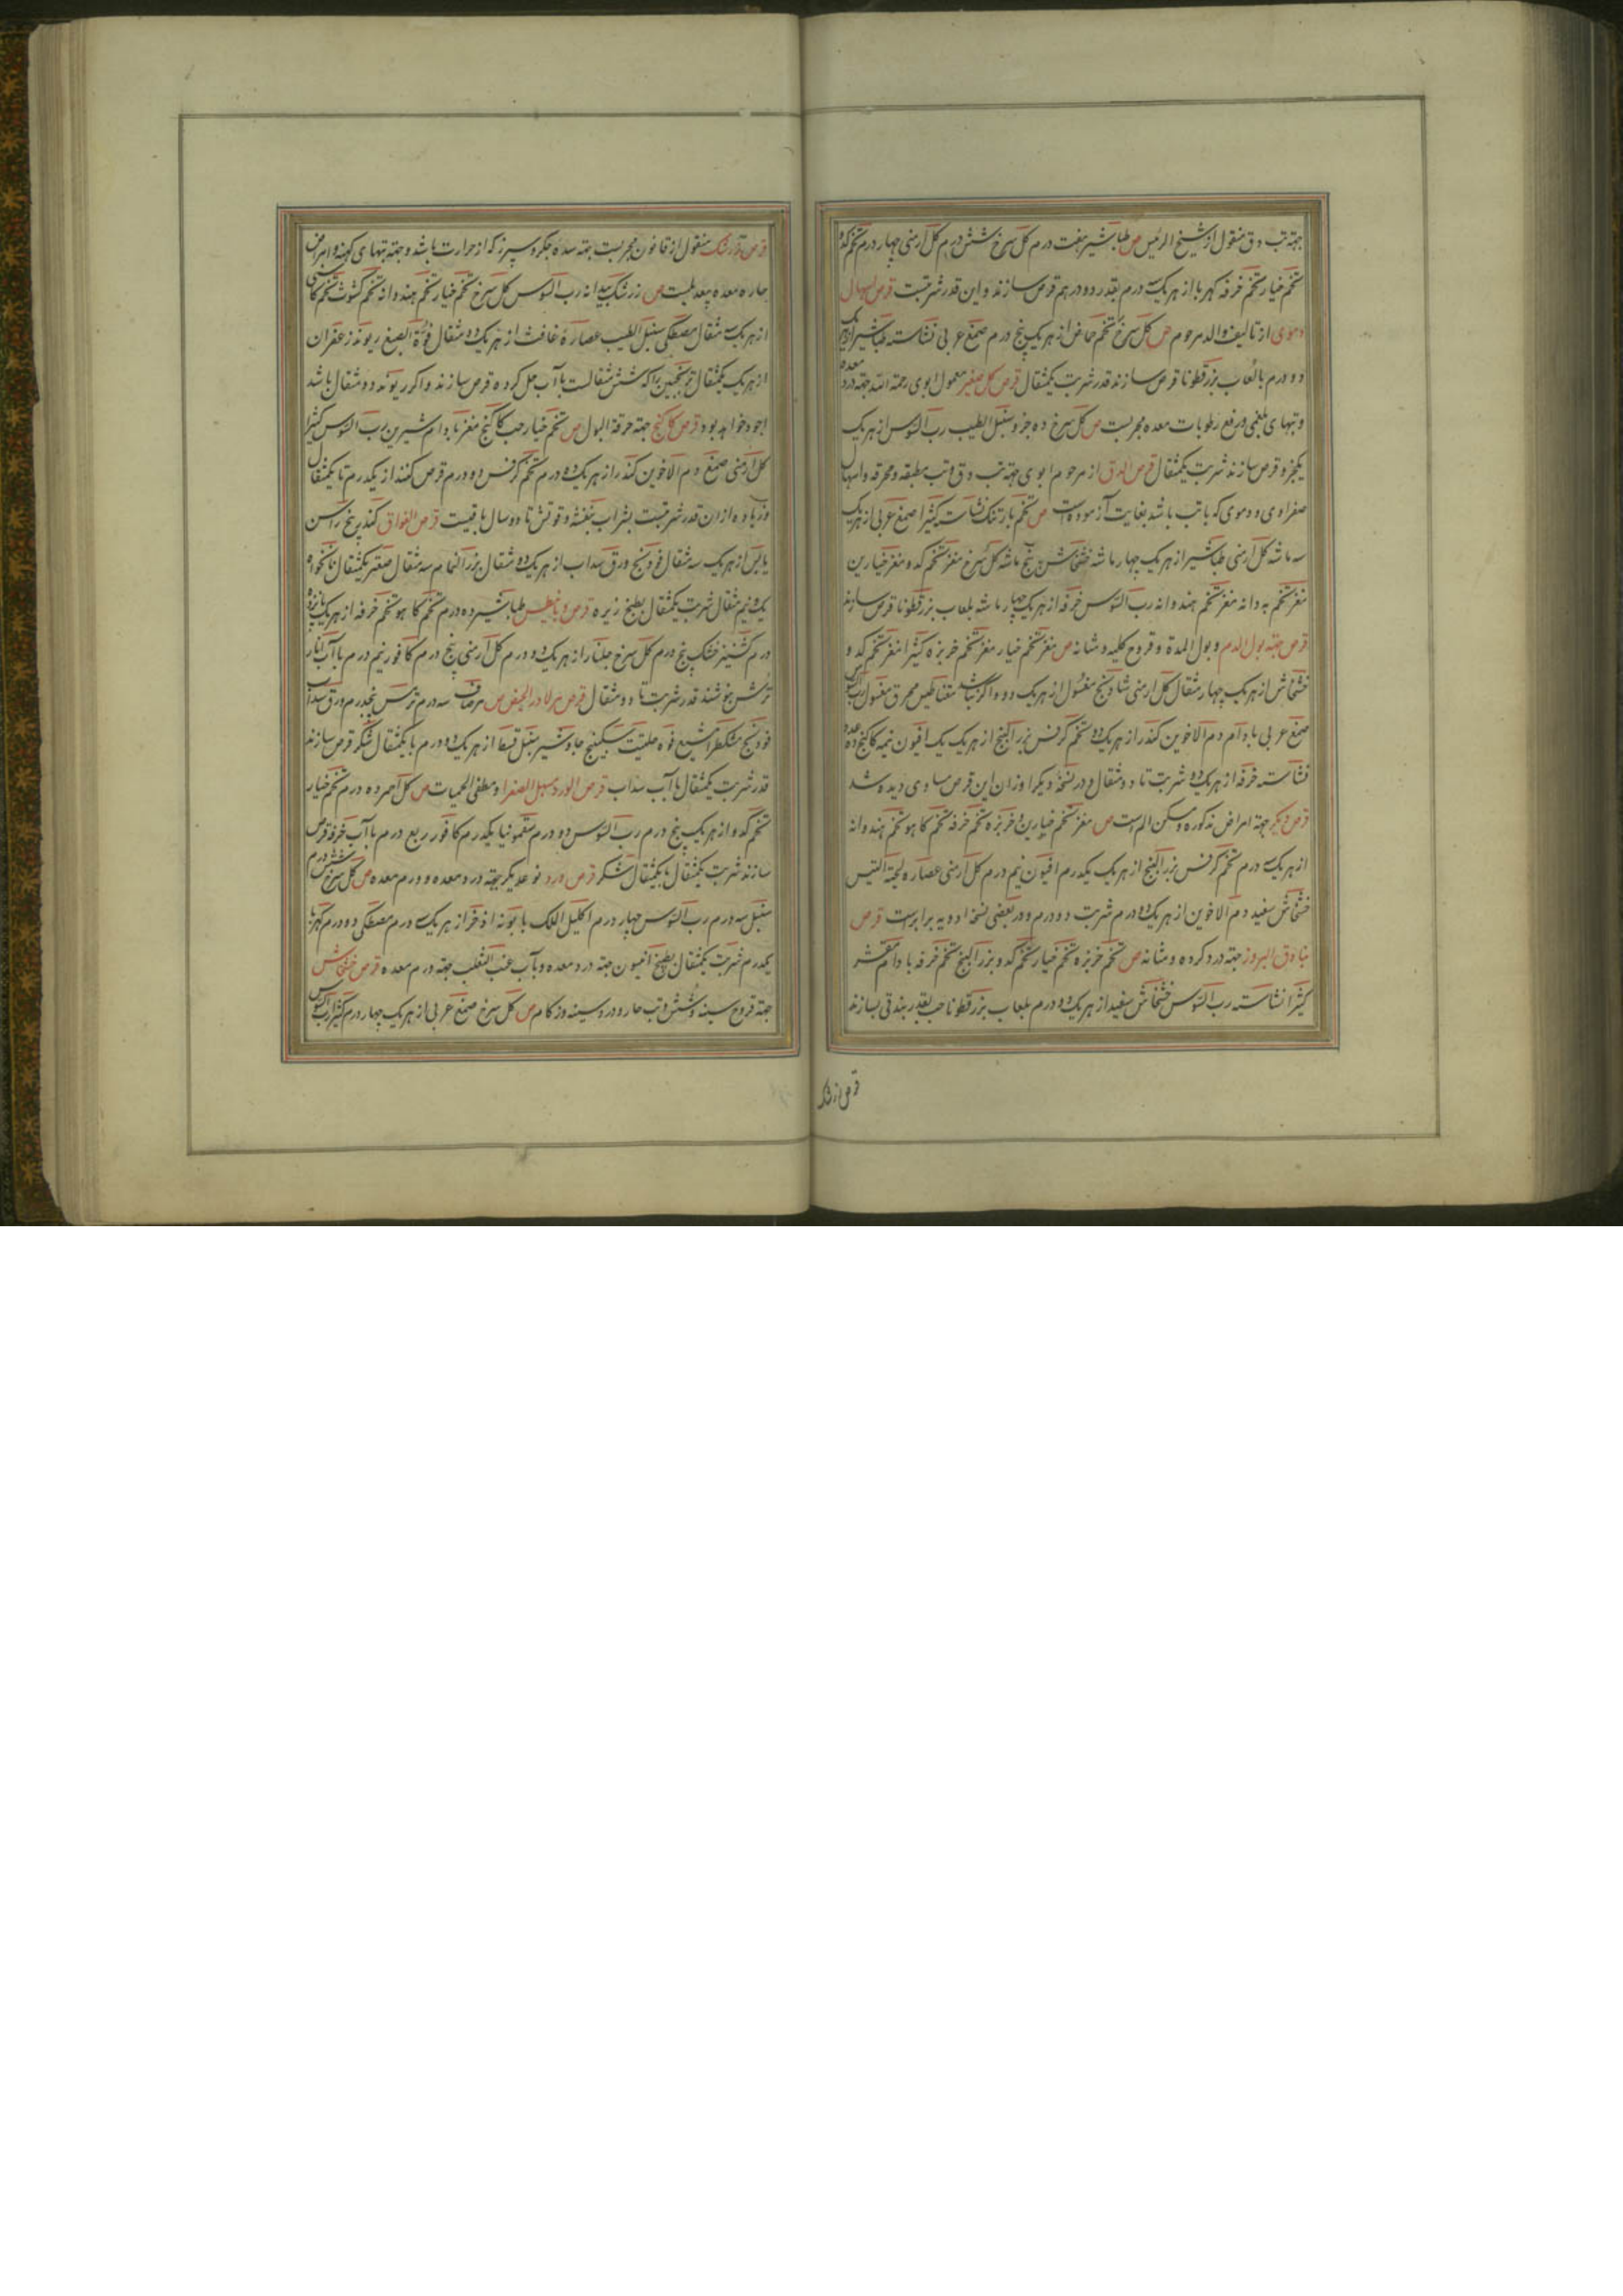 جهته تب دق منقول از شیخ الرئیس ص طباشیر هفت درم کل سرخ شش درم کل ارمنی چهار درم تخم کدو
تخم خیار تخم خرفه کهربا از هریک سه درم بقدر دو درهم قرص سازند و این قدر شربتست قرص اسهال
دموی از تالیف والد مرحوم ص کل سرخ تخم حماض از هریک پنج درم صمغ عربی نشاسته طباشیر از هریک
دو درم بالعاب بزرقطونا قرص سازند قدر شربت یکمثقال قرص کل صغیر معمول ابوی رحمة الله جهته درد معده
و تبهای بلغمی و رفع رطوبات معده مجربست ص کل سرخ ده جزو سنبل الطیب رب السوس از هریک
یکجزو قرص سازند شربت یکمثقال قرص الدق از مرحوم ابوی جهته تب دق و تب مطبقه و محرقه و اسهال
صفراوی و دموی که باتب باشد بغایت آزموده است ص تخم بارتنک نشاسته کتیرا صمغ عربی از هریک
سه ماشه کل ارمنی طباشیر از هریک چهار ماشه خشخاش پنج ماشه کل سرخ مغز تخم کدو مغز خیارین
مغز تخم به دانه مغز تخم هندوانه رب السوس خرفه از هریک چهار ماشه بلعاب بزرقطونا قرص سازند
قرص جهته بول الدم و بول المدة و قروح کلیه و مثانه ص مغز تخم خیار مغز تخم خربزه کتیرا مغز تخم کدو و
خشخاش از هریک چهار مثقال کل ارمنی شادنج مغسول از هریک دو و اگر نباشد مقناطیس محرق مغسول رب السوس
صمغ عربی بادام دم الاخوین کندر از هریک دو تخم کرفس بزر البنج از هریک یک افیون نیم کاکنج ده عدد
نشاسته خرفه از هریک دو شربت تا دو مثقال و در نسخه دیگر اوزان این قرص مساوی دیده شد
قرص دیگر جهته امراض مذکوره و مسکن الم است ص مغز تخم خیارین و خربزه تخم خرفه تخم کاهو تخم هندوانه
از هریک سه درم تخم کرفس بزر البنج از هریک یکدرم افیون نیم درم کل ارمنی عصاره لحیة التیس
خشخاش سفید دم الاخوین از هریک دو درم شربت دو درم و در بعضی نسخ ادویه برابرست قرص
بنادق البزور جهته درد کرده و مثانه ص تخم خربزه تخم خیار تخم کدو بزر البنج تخم خرفه بادام مقشر
کتیرا نشاسته رب السوس خشخاش سفید از هریک دو درم بلعاب بزرقطونا حب بقدر بندقی بسازند
قرص زرشک
قرص زرشک منقول از قانون مجربست جهته سده جکر و سپرز که از حرارت باشد و جهته تبهای کهنه و امراض
حاره معده بیعدیلست ص زرشک بیدانه رب السوس کل سرخ تخم خیار تخم هندوانه تخم کشوث تخم کاسنی
از هریک سه مثقال مصطکی سنبل الطیب عصاره غافث از هریک دو مثقال فوة الصبغ ریوند زعفران
از هریک یکمثقال ترنجبین را که شش مثقالست باآب حل کرده قرص سازند و اکر ریوند دو مثقال باشد
اجود خواهد بود قرص کاکنج جهته حرقة البول ص تخم خیار حب کاکنج مغز بادام شیرین رب السوس کتیرا
کل ارمنی صمغ دم الاخوین کندر از هریک ده درم تخم کرفس دو درم قرص کنند از یکدرم تا یکمثقال
و زیاده ازان قدر شربتست بشراب بنفشه و قوتش تا دو سال باقیست قرص الفواق کندر پنج راسن
یابس از هریک سه مثقال فودنج ورق سداب از هریک دو مثقال بزر النمام سه مثقال صعتر یکمثقال نانخواه
یک و نیم مثقال شربت یکمثقال بطبخ زیره قرص ذیابیطس طباشیر ده درم تخم کاهو تخم خرفه از هریک پانزده
درم کشنیز خشک پنج درم کل سرخ جلنار از هریک دو درم کل ارمنی پنج درم کافور نیم درم باآب انار
ترش بنوشند قدر شربت تا دو مثقال قرص مر لادرار الحیض ص مر صاف سه درم ترمس پنجدرم ورق سداب
فودنج مشکطرامشیع فوه حلتیت سکبینج جاوشیر سنبل قسط از هریک دو درم با یکمثقال شکر قرص سازند
قدر شربت یکمثقال باآب سداب قرص الورد مسهل الصفرا و مطفی الحمیات ص کل احمر ده درم تخم خیار
تخم کدو از هریک پنج درم رب السوس دو درم سقمونیا یکدرم کافور ربع درم باآب خرفه قرص
سازند شربت یکمثقال بایکمثقال شکر قرص ورد نوعدیکر جهته درد معده و ورم معده ص کل سرخ شش درم
سنبل سه درم رب السوس چهار درم اکلیل الملک بابونه اذخر از هریک سه درم مصطکی دو درم کهربا
یکدرم شربت یکمثقال بطبیخ افتیمون جهته درد معده و بآب عنب الثعلب جهته ورم معده قرص خشخاش
جهته قروح سینه و شش و تب حار و درد سینه و زکام ص کل سرخ صمغ عربی از هریک چهار درم کتیرا رب السوس